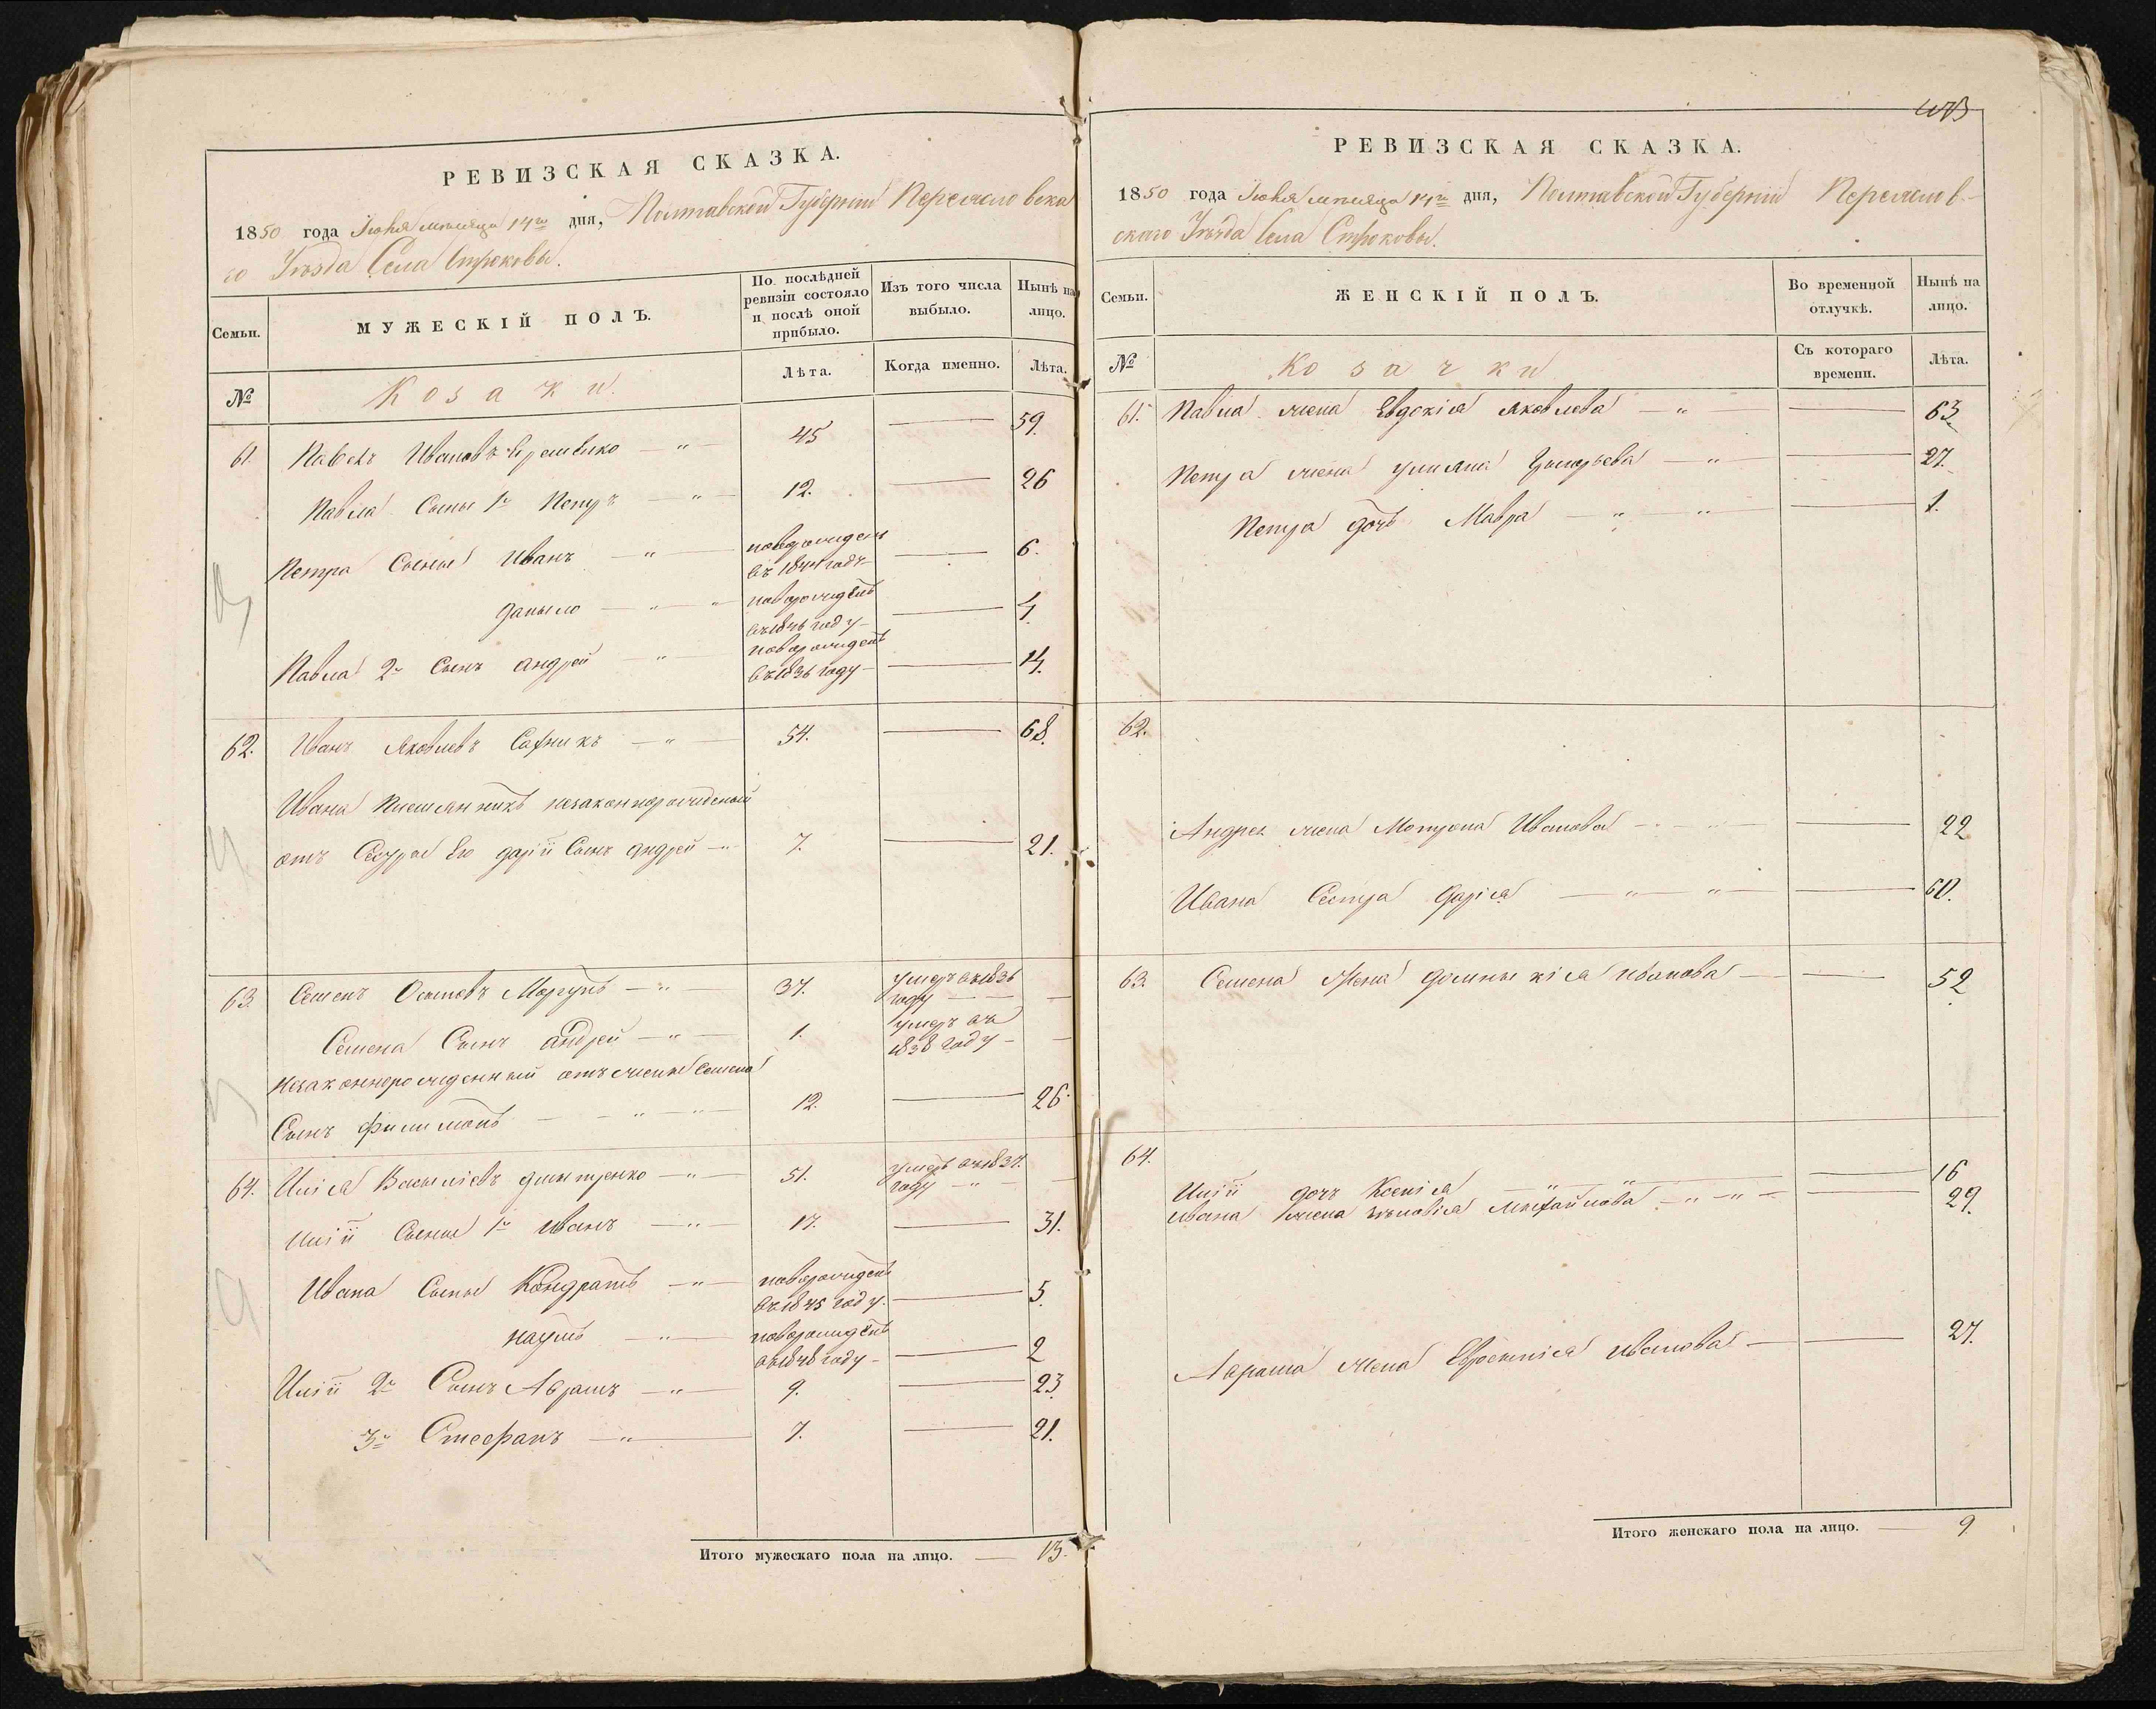 РЕВИЗСКАЯ СКАЗКА.
1850 года Іюня мѣсяца 14го дня, Полтавской Губерніи Переяславска
го Уѣзда Села Строковы.
Семьи.
МУЖЕСКІЙ ПОЛЪ.
По послѣдней ревизіи состояло и послѣ оной прибыло.
Изъ того числа выбыло.
Нынѣ на лицо.
№
Козаки.
Лѣта.
Когда именно.
Лѣта.
61. Павелъ Ивановъ 45 — 59.
Павла Сыны 1й Петръ — 12. — 26
Петра Сыны Иванъ — новорожденъ въ 1844 году — 6.
Даныло — новорожденъ въ 1846 году — 4.
Павла 2й Сынъ андрей — новорожденъ въ 1836 году — 14.
62. Иванъ Яковлевъ — 54. — 68.
Ивана племянникъ незаконнорожденый
отъ Сестры Его даріи Сынъ андрей — 7. — 21.
63. Семенъ Осиповъ Моргунъ — 37. умеръ въ 1836 году —
Семена Сынъ андрей — 1. умеръ въ 1838 году —
Незаконнорожденный отъ жены Семена
Сынъ филимонъ — 12. — 26.
64. Илія Васыліевъ — 51. умеръ въ 1837. году —
Иліи Сыны 1й иванъ — 17. — 31.
Ивана Сыны Кондратъ — новорожденъ въ 1845 году. — 5.
наумъ — новорожденъ въ 1848 году — 2
Иліи 2й Сынъ Аврамъ — 9. — 23.
3й Стефанъ — 7. — 21.
Итого мужескаго пола на лицо. — 13.
РЕВИЗСКАЯ СКАЗКА.
1850 года Іюня мѣсяца 14го дня, Полтавской Губерніи Переяслов-
скаго Уѣзда Села Строковы.
Семьи.
ЖЕНСКІЙ ПОЛЪ.
Во временной отлучкѣ.
Нынѣ на лицо.
№
Козачки
Съ котораго времени.
Лѣта.
61. Павла жена Евдокія яковлева — 63
Петра жена улияна Григорьева — 27.
Петра дочь Мавра — 1.
62.
Андрея жена Мотрона Иванова — 22
Ивана Сестра дарія — 60.
63. Семена жена домныкія иванова — 52
64.
Иліи дочь Ксенія — 16
ивана жена михайлова — 29.
Аврама жена Евфимія иванова — 27.
Итого женскаго пола на лицо. — 9